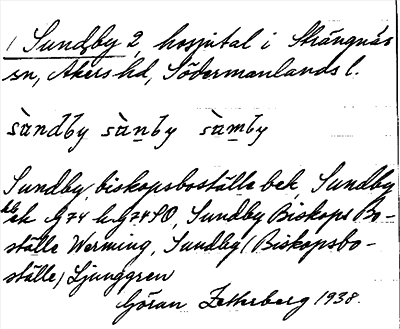 1 Sundby 2, hospital i Strängnäs
sn, Åkers hd, Södermanlands l.
sàndby sànby sàmby
Sundby, biskopsboställe bek, Sundby
ek G74 SO, Sundby Biskops Bo-
ställe Werming, Sundby (Biskopsbo-
ställe) Ljunggren
Göran Zetterberg 1938.